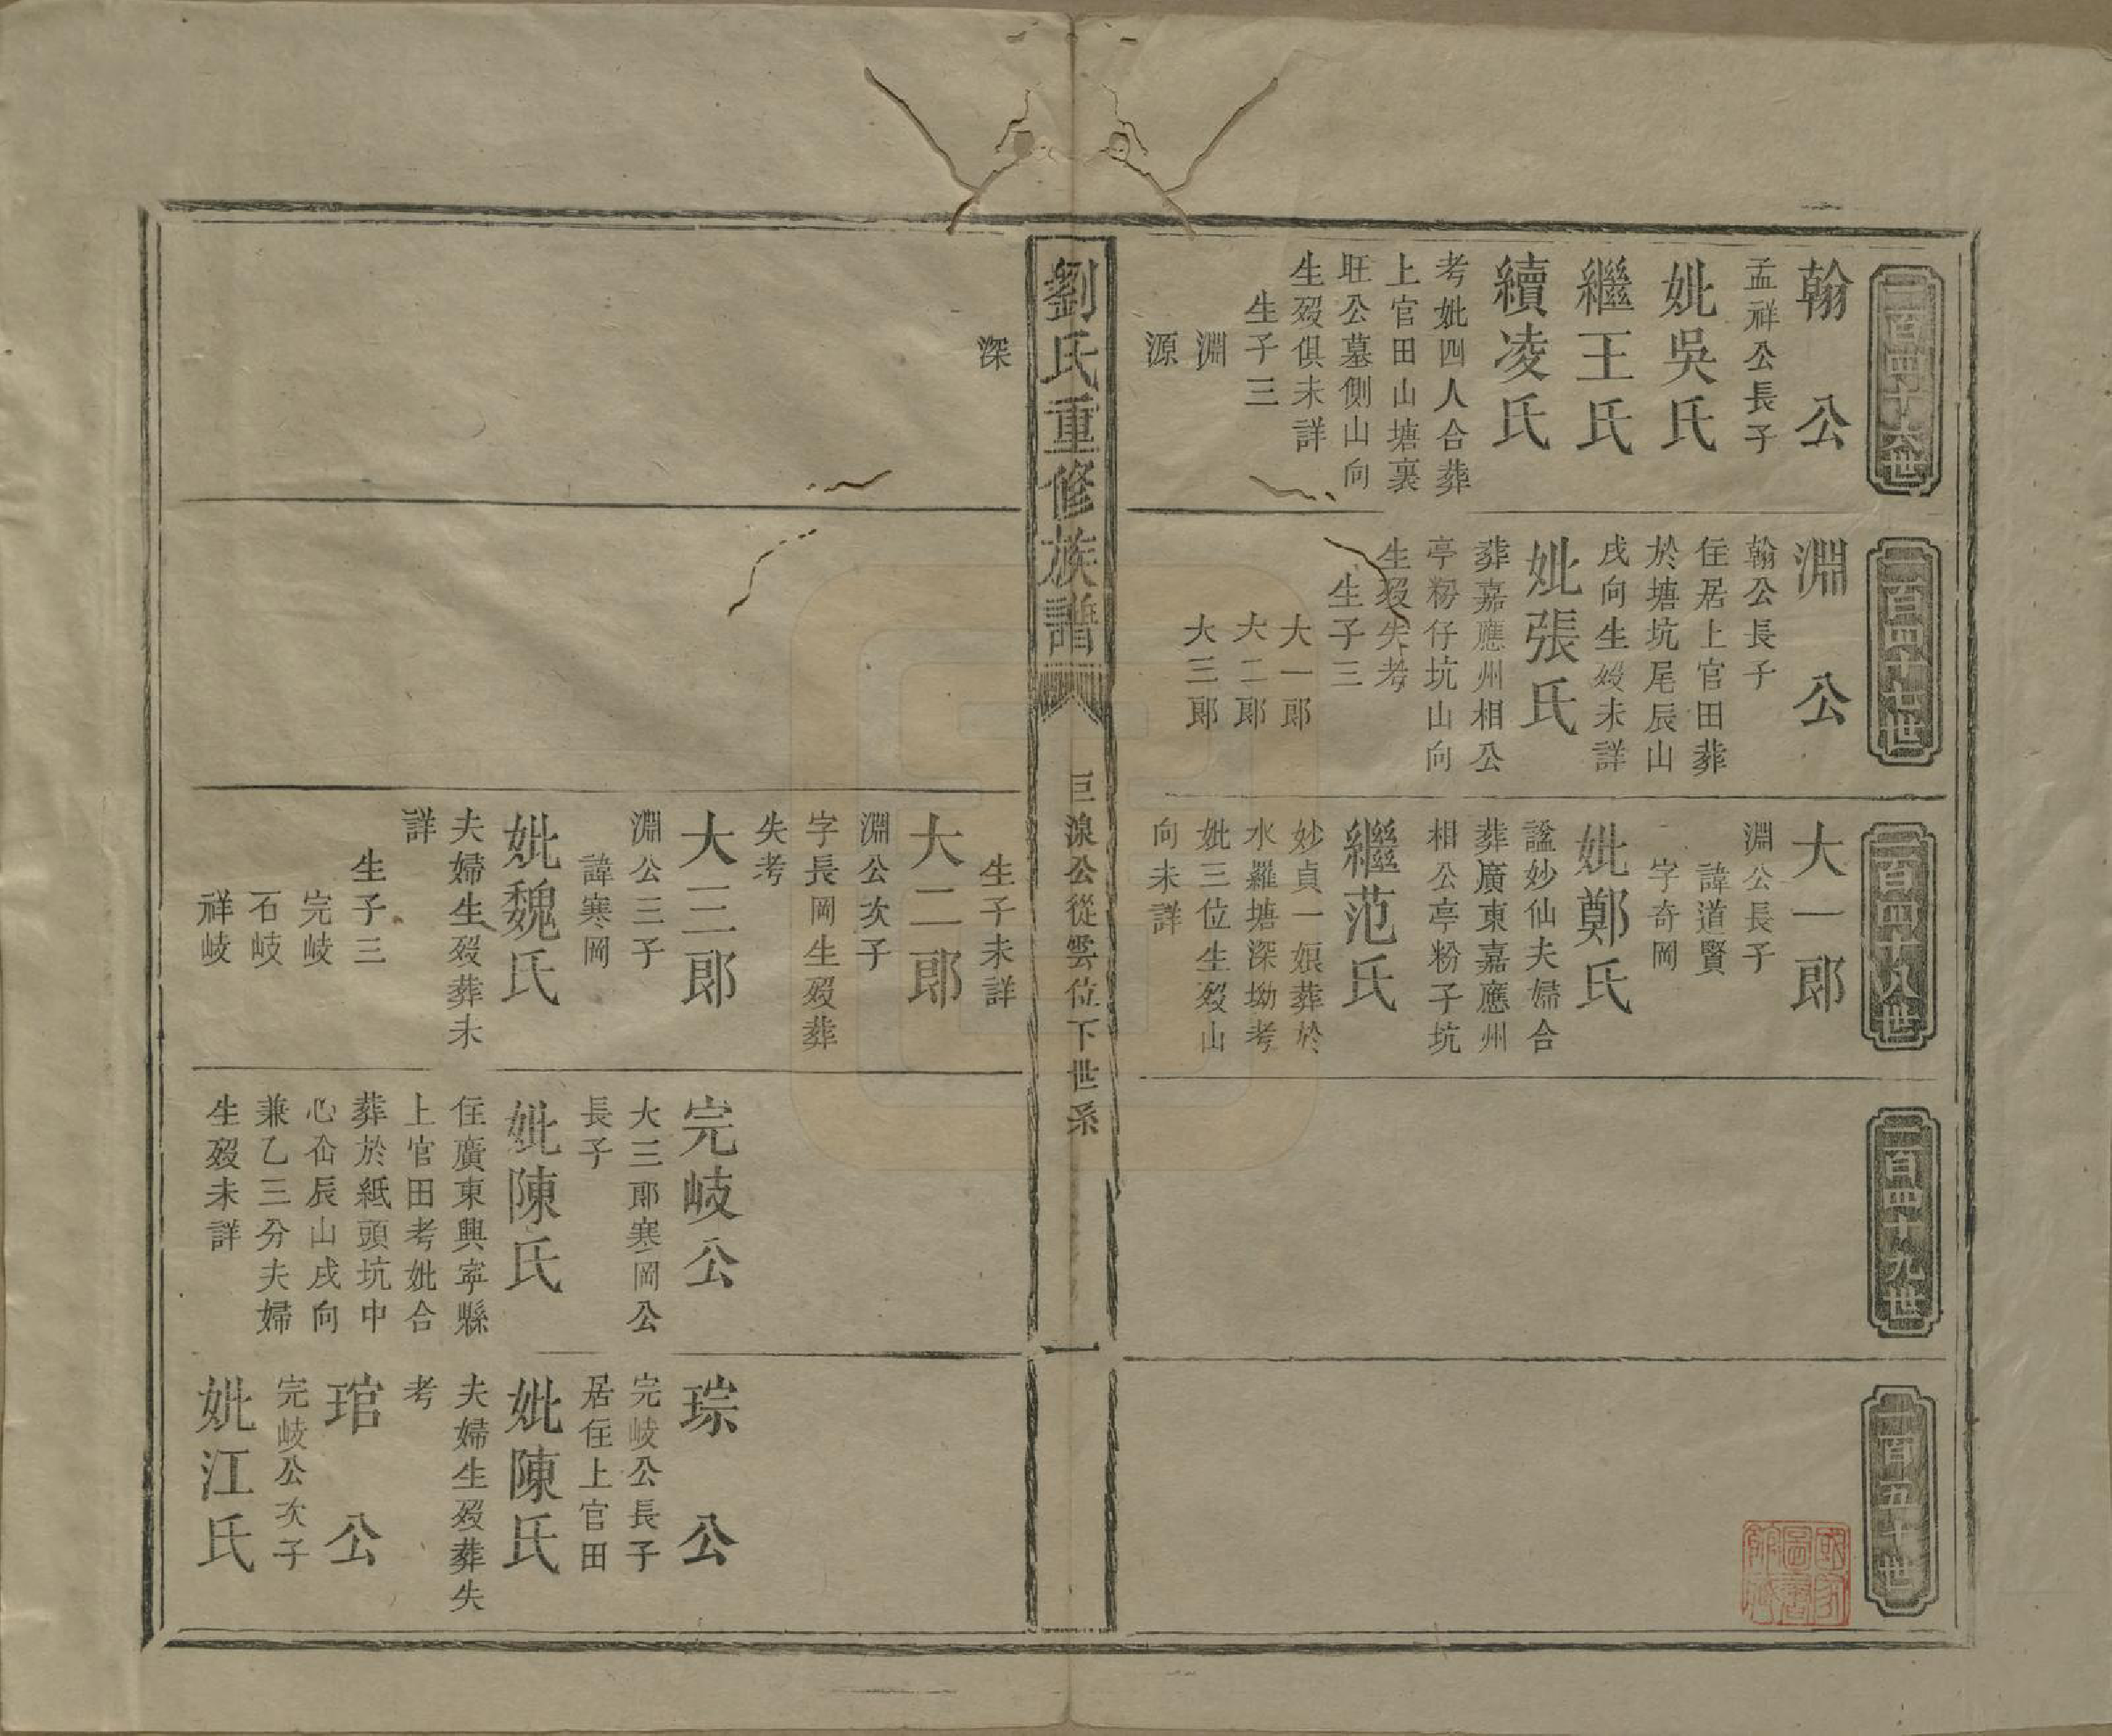 一百四十六世
翰公
孟祥公長子
妣吳氏
繼王氏
續凌氏
考妣四人合葬
上官田山塘裏
旺公墓側山向
生歿俱未詳
生子三
淵
源
深
一百四十七世
淵公
翰公長子
住居上官田葬
於塘坑尾辰山
戌向生歿未詳
妣張氏
葬嘉應州相公
亭粉仔坑山向
生歿失考
生子三
大一郎
大二郎
大三郎
一百四十八世
大一郎
淵公長子
諱道賢
字奇岡
妣鄭氏
諡妙仙夫婦合
葬廣東嘉應州
相公亭粉子坑
繼范氏
妙貞一娘葬於
水羅塘深坳考
妣三位生歿山
向未詳
生子未詳
大二郎
淵公次子
字長岡生歿葬
失考
大三郎
淵公三子
諱寒岡
妣魏氏
夫婦生歿葬未
詳
生子三
完岐
石岐
祥岐
一百四十九世
完岐公
大三郎寒岡公
長子
妣陳氏
住廣東興寧縣
上官田考妣合
葬於紙頭坑中
心侖辰山戌向
兼乙三分夫婦
生歿未詳
一百五十世
琮公
完岐公長子
居住上官田
妣陳氏
夫婦生歿葬失
考
琯公
完岐公次子
妣江氏
劉氏重修族譜
巨湶公從雲位下世系
一
國家圖書館藏